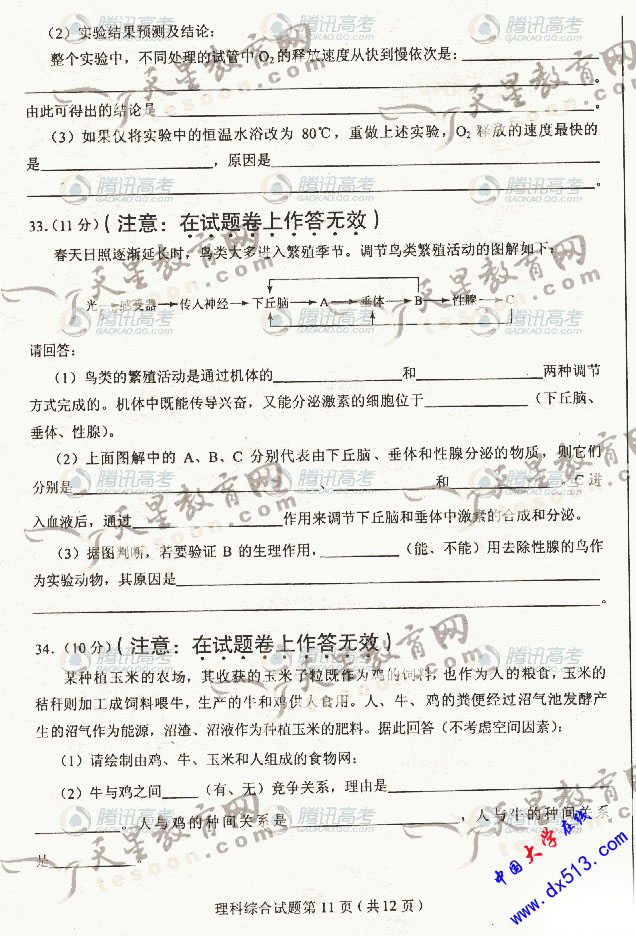 (2) 实验结果预测及结论:
整个实验中，不同处理的试管中O₂的释放速度从快到慢依次是:
。
由此可得出的结论是。
(3) 如果仅将实验中的恒温水浴改为 80℃，重做上述实验，O₂ 释放的速度最快的
是，原因是
。
33.(11 分)(注意：在试题卷上作答无效)
春天日照逐渐延长时，鸟类大多进入繁殖季节。调节鸟类繁殖活动的图解如下:
光→感受器→传入神经→下丘脑→A→垂体→B→性腺→C
请回答:
(1) 鸟类的繁殖活动是通过机体的和两种调节
方式完成的。机体中既能传导兴奋，又能分泌激素的细胞位于(下丘脑、
垂体、性腺)。
(2) 上面图解中的 A、B、C 分别代表由下丘脑、垂体和性腺分泌的物质，则它们
分别是、和，C 进
入血液后，通过作用来调节下丘脑和垂体中激素的合成和分泌。
(3) 据图判断，若要验证 B 的生理作用，(能、不能) 用去除性腺的鸟作
为实验动物，其原因是
。
34.(10 分)(注意：在试题卷上作答无效)
某种植玉米的农场，其收获的玉米子粒既作为鸡的饲料，也作为人的粮食，玉米的
秸秆则加工成饲料喂牛，生产的牛和鸡供人食用。人、牛、鸡的粪便经过沼气池发酵产
生的沼气作为能源，沼渣、沼液作为种植玉米的肥料。据此回答(不考虑空间因素):
(1) 请绘制由鸡、牛、玉米和人组成的食物网:
(2) 牛与鸡之间(有、无) 竞争关系，理由是
。人与鸡的种间关系是，人与牛的种间关系
是。
理科综合试题第 11 页 ( 共 12 页 )
腾讯高考
GAOKAO.QQ.COM
天星教育网
tesoon.com
中国大学在线
www.dx513.com